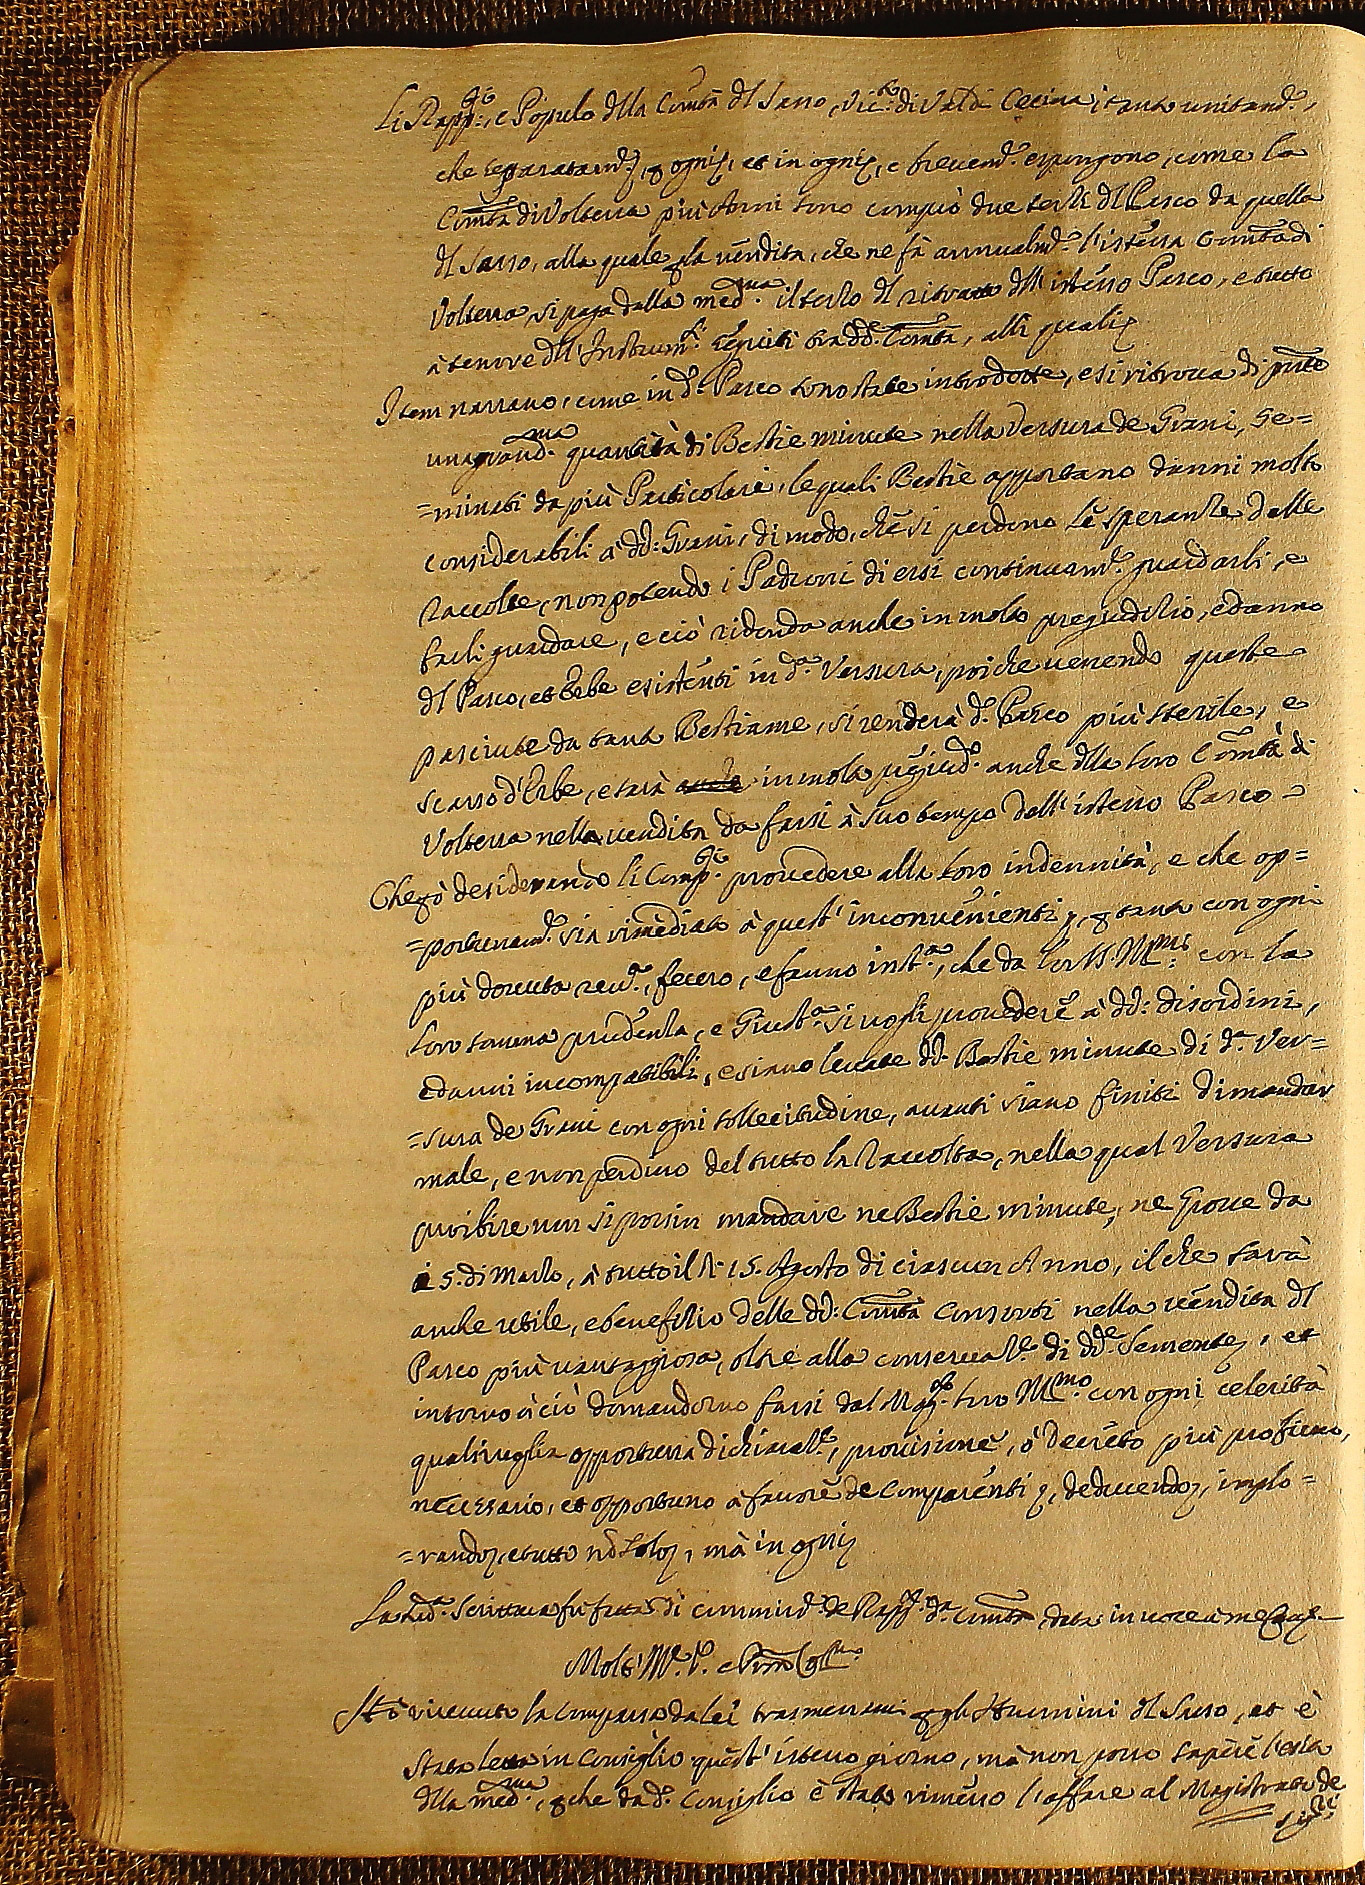 Li Rapp:ti, e Popolo dlla Com̃tà dl Sasso, Vic:to di Val di Cecina, tanto unitamte,
che separatamte, p ogni, et in ogni, e brevemte espongono, come la
Com̃tà di Volterra più Anni sono comprò due terzi dl Pasco da quella
dl Sasso, alla quale p la vendita, che ne fà annualmte l'istessa Com̃tà di
Volterra si paga dalla medma il terzo dl ritratto dll'istesso Pasco, e tutto
à tenore dll'Instrumti seguiti tra dd. Com̃tà, alli quali
Item narrano, come in do Pasco sono state introdotte, e si ritrova di pñte
una grandma quantità di Bestie minute nella Versura de Grani, se=
=minati da più Particolari, le quali Bestie apportano danni molto
considerabili à dd: Grani, di modo, che si perdono le speranze delle
Raccolte, non potendo i Padroni di essi continuamte guardarli, e
farli guardare, e ciò ridonda anche in molto pregiudizio, e danno
dl Pasco, et Erbe esistenti in da Versura, poiche venendo queste
pasciute da tanto Bestiame, si renderà do Pasco più sterile, e
scarso d'Erbe, e sarà in molto pregiudo anche dlla loro Com̃tà di
Volterra nella vendita da farsi à suo tempo dell'istesso Pasco
Che pò desiderando li Comp:ti provedere alla loro indennità, e che op=
=portunamte sia rimediato à quest'inconvenienti, p tanto con ogni
più dovuta revza, fecero, e fanno insta, che da lor SS. Mmi con la
loro somma prudenza, e Giusta si vogli provedere à dd: disordini,
e danni incompatibili, e siano levate dd. Bestie minute di da Ver=
=sura de Grani con ogni sollecitudine, avanti siano finiti di mandar
male, e non perdino del tutto la Raccolta, nella qual Versura
proibire non si possin mandare ne Bestie minute, ne grosse da
i 5. di Marzo, à tutto il dì 15. Agosto di ciascun Anno, il che sarà
anche utile, e benefizio delle dd: Com̃tà Consorti nella vendita dl
Pasco più vantaggiosa, oltre alla conservaze di dde Semente, et
intorno à ciò domandorno farsi dal Magto loro Mmo con ogni celerità
qualsivoglia opportuna dichiaraze, provisione, ò Decreto più proficuo,
necessario, et opportuno à favore de Comparenti, deducendo, implo=
=rando, e tutto nõ solo, mà in ogni
La Scrittura fù fatta di commisne de Rapp:ti da Com̃tà data in voce à me
Molt'
Hò ricevuto la Comparsa da lei trasmessami p gli Huomini dl Sasso, et è
stata letta in Consiglio quest'istesso giorno, mà non posso sapere l'esito
dlla medma, p che da do Consiglio è stato rimesso l'affare al Magistrato de
Sigri